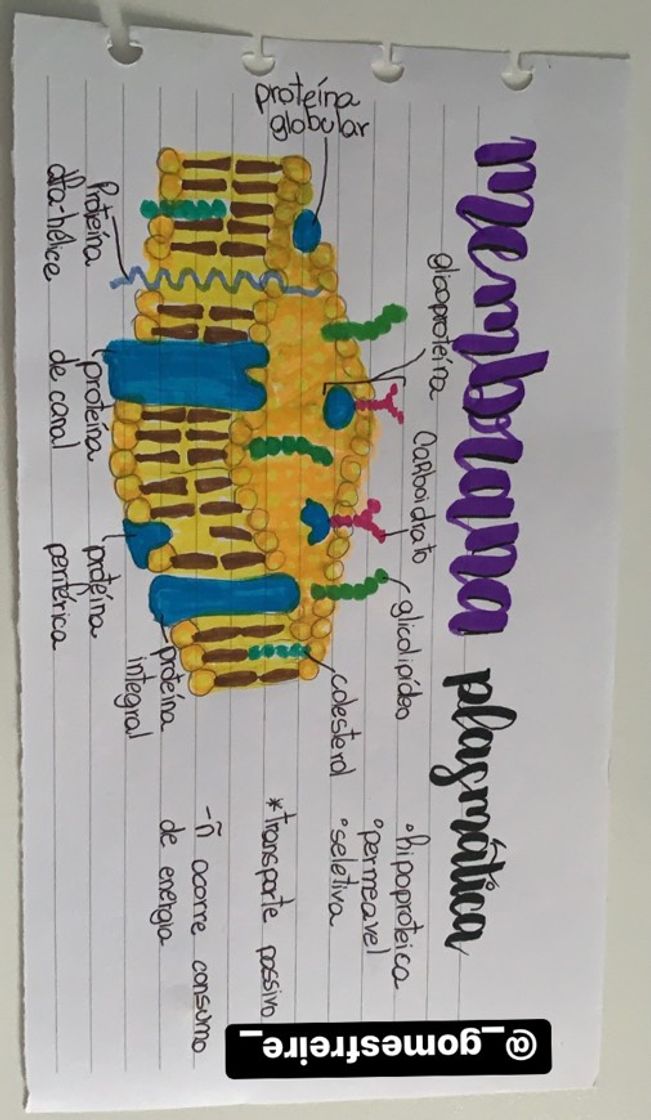 membrana plasmática
proteína
globular
glicoproteína
Carboidrato
glicolipídeo
colesterol
Proteína
alfa-hélice
proteína
de canal
proteína
periférica
proteína
integral
•hipoproteica
•permeavel
•seletiva
*transporte passivo
-ñ ocorre consumo
de energia
@_gomesfreire_